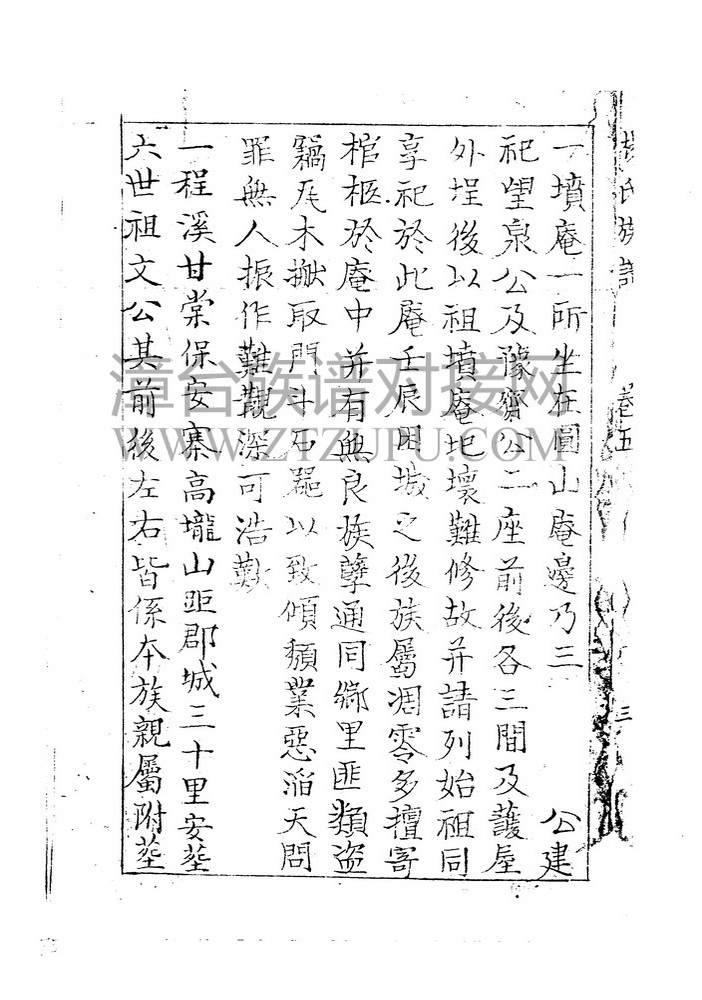 一墳庵一所坐在圓山庵邊乃三　公建
祀望泉公及豫齋公二座前後各三間及護屋
外埕後以祖墳庵圯壞難修故并請列始祖同
享祀於此庵壬辰困城之後族屬凋零多擅寄
棺柩於庵中并有無良族孽通同鄉里匪類盗
竊瓦木搬取門斗石器以致傾頹業惡滔天問
罪無人振作難觀深可浩歎
一程溪甘棠保安寨高壠山距郡城三十里安塟
六世祖文公其前後左右皆係本族親屬附塟
氏族譜　卷五
三
漳台族谱对接网
WWW.ZTZUPU.COM